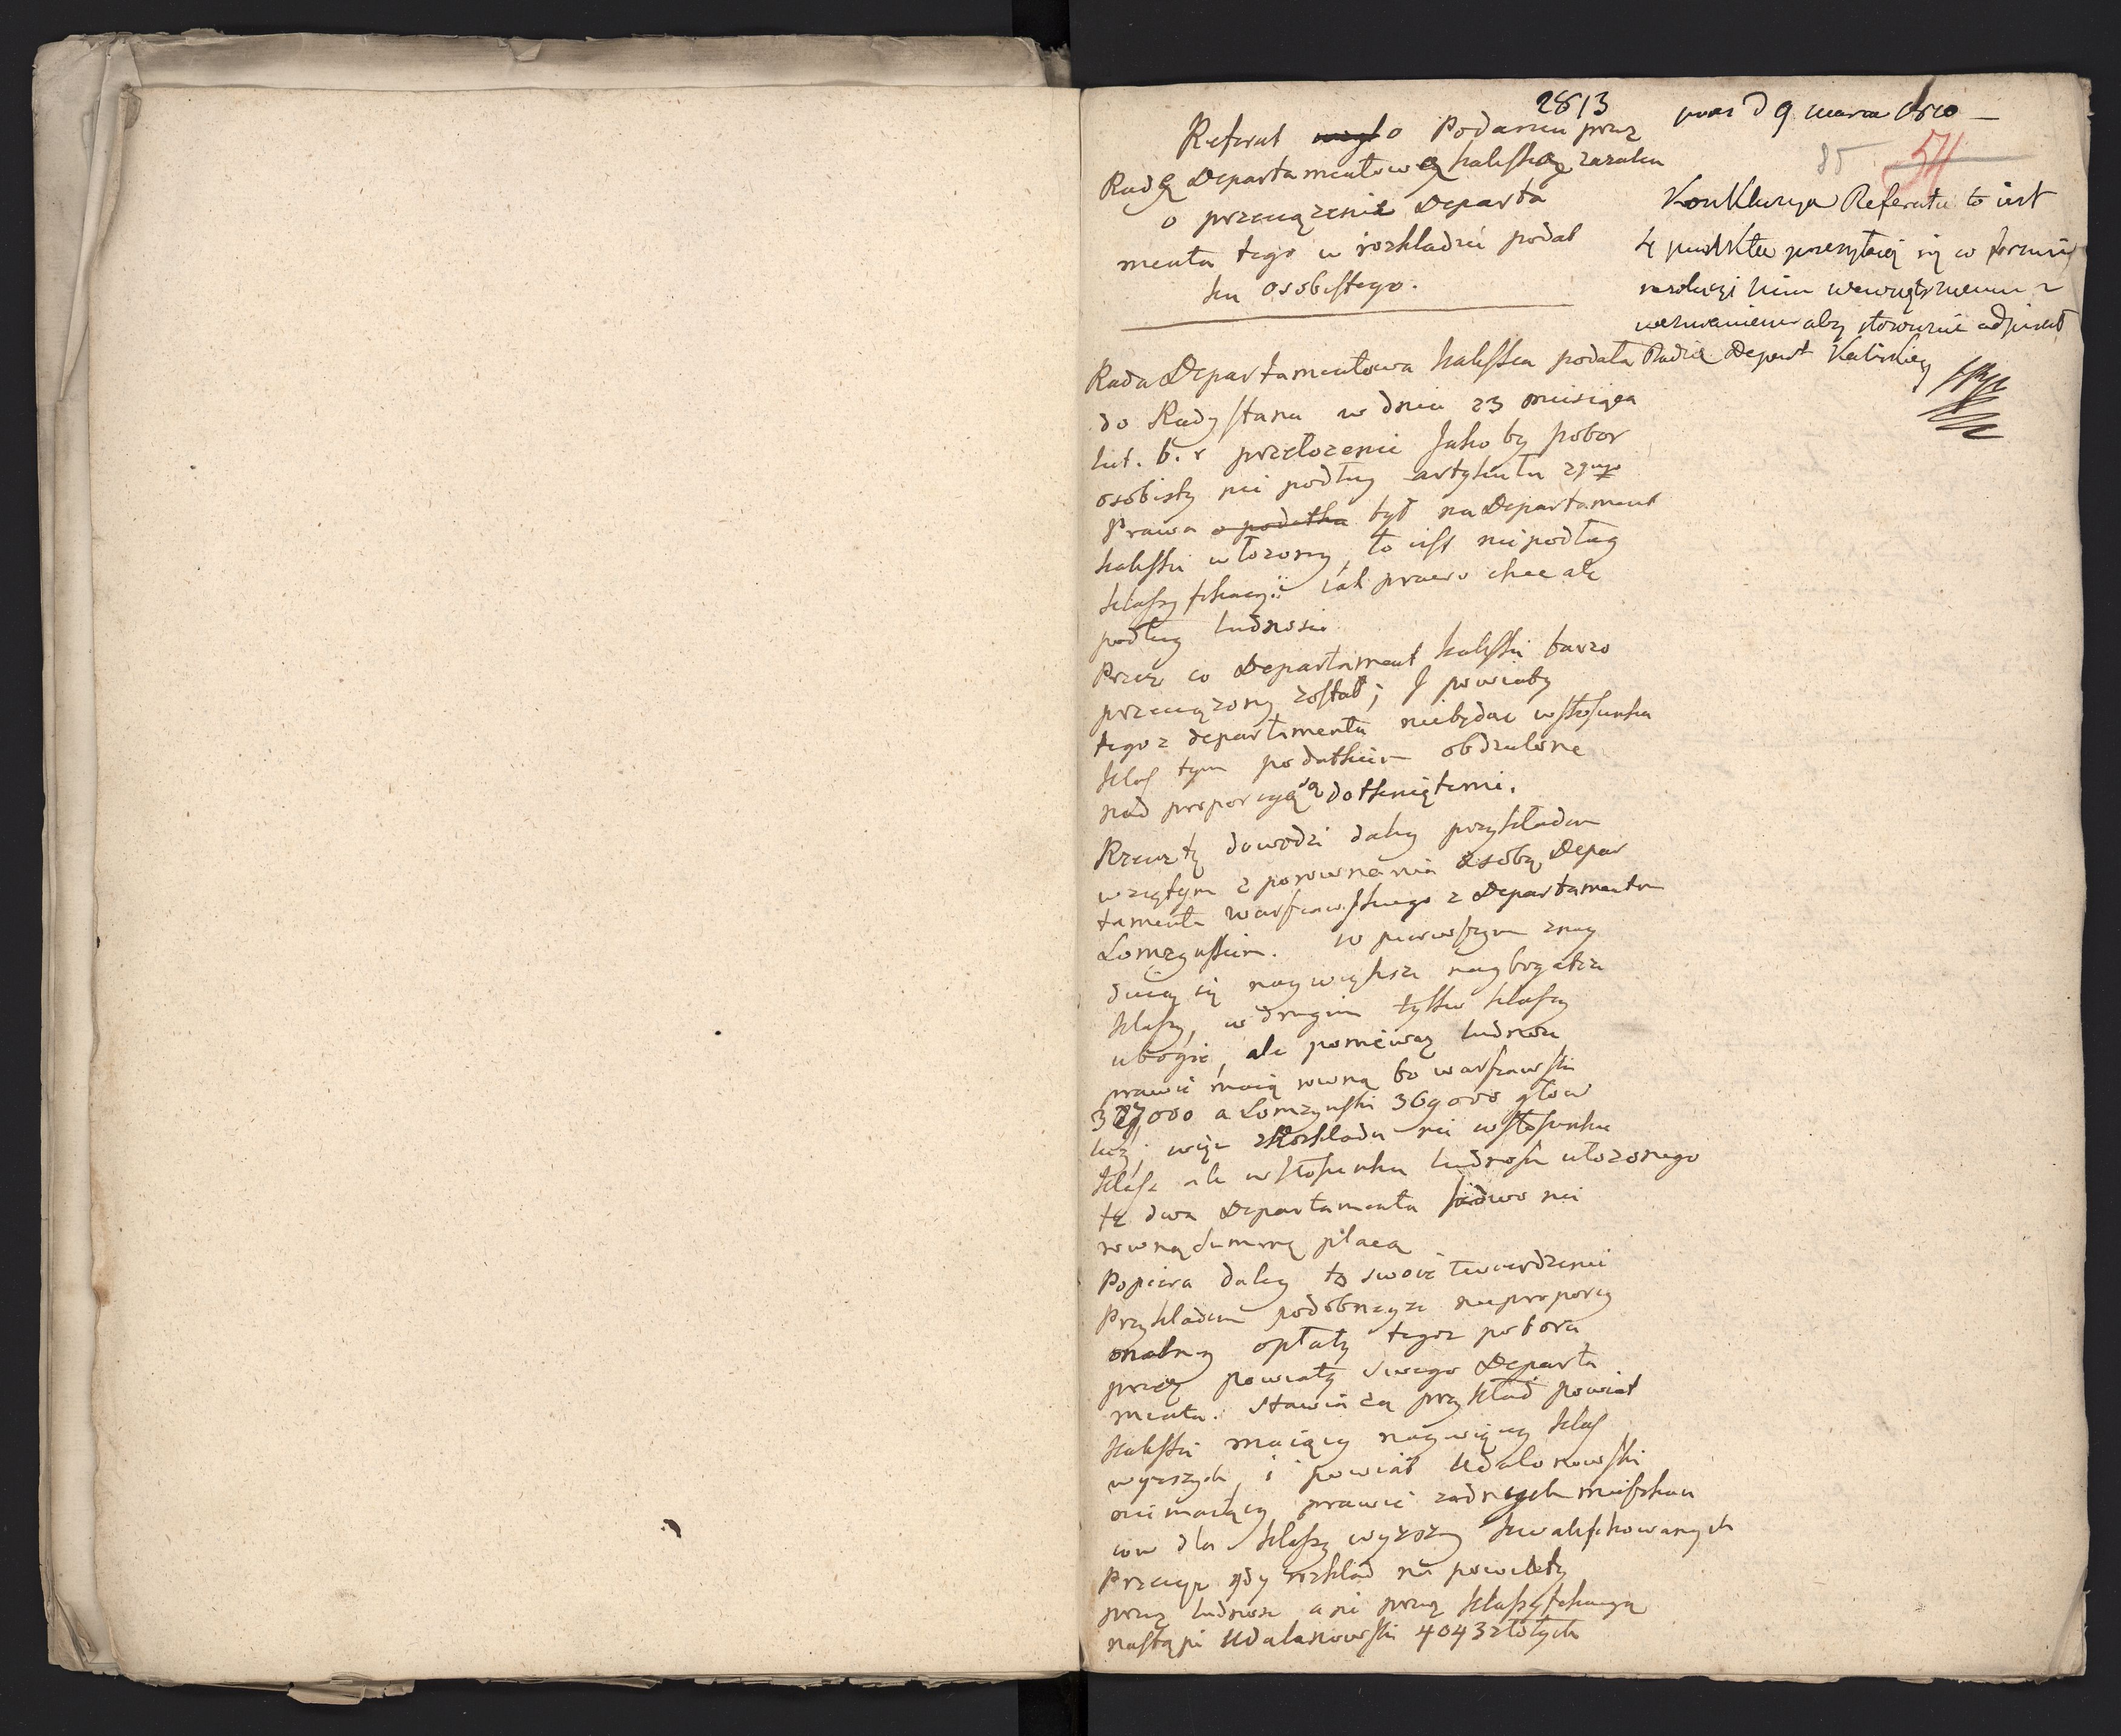 2813
d 9 marca 1810
85 54
Referat o Podaniu przez
Radę Departamentową Kaliską zażaleń
o przeciązenie Departa
mentu tego w rozkładzie podat
ku osobistego.
Konkluzya Referatu to iest
4 punkta przesyłaią się w formie
rezolucyi Min wewnętrznemu z
wezwaniem aby stosownie odpisał
Radzie Depart Kaliskiey
Rada Departamentowa kaliska podała
do Rady Stanu w dniu 23 miesiąca
lut. b. r przełozenie Jakoby pobor
osobisty nie podług artykułu 2go
Prawa o podatku był na Departament
kaliski włozony, to iest nie podług
klassyfikacyi iak prawo chce ale
podług ludnosci
Przez co Departament kaliski barzo
przeciązony został; I powiaty
tegoz departamentu niebędąc w stosunku
klas tym podatkiem obdzielone
nad proporcyą są dotkniętemi.
Rzecz tę dowodzi daley przykładem
wziętym z porownania z sobą Depar
tamentu warszawskiego z Departamentem
Łomzynskim. w pierwszym znay
duią się naywiększe naybogatsze
klassy, w drugim tylko klassy
ubogie, ale poniewaz ludnosc
prawie maią rowną bo warszawski
377000 a Łomzynski 369000 głow
liczy, więc z Rozkładu nie w stosunku
klass ale w stosunku ludnosci ułozonego
te dwa Departamenta ledwo nie
rowną summę płacą
Popiera daley to swoie twierdzenie
Przykładem podobneyze nieproporcy
onalney opłaty tegoz poboru
przez powiaty swego Departa
mentu. Stawia za przykład powiat
kaliski maiący naywięcey klas
wyzszych, i powiat Odalanowski
niemaiący prawie zadnych mieszkan
cow dla klassy wyzszey kwalifikowanych
Przeciez gdy rozkład na powiaty
przez ludnosc a nie przez klassyfikacyą
nastąpi Odalanowski 4043 złotych